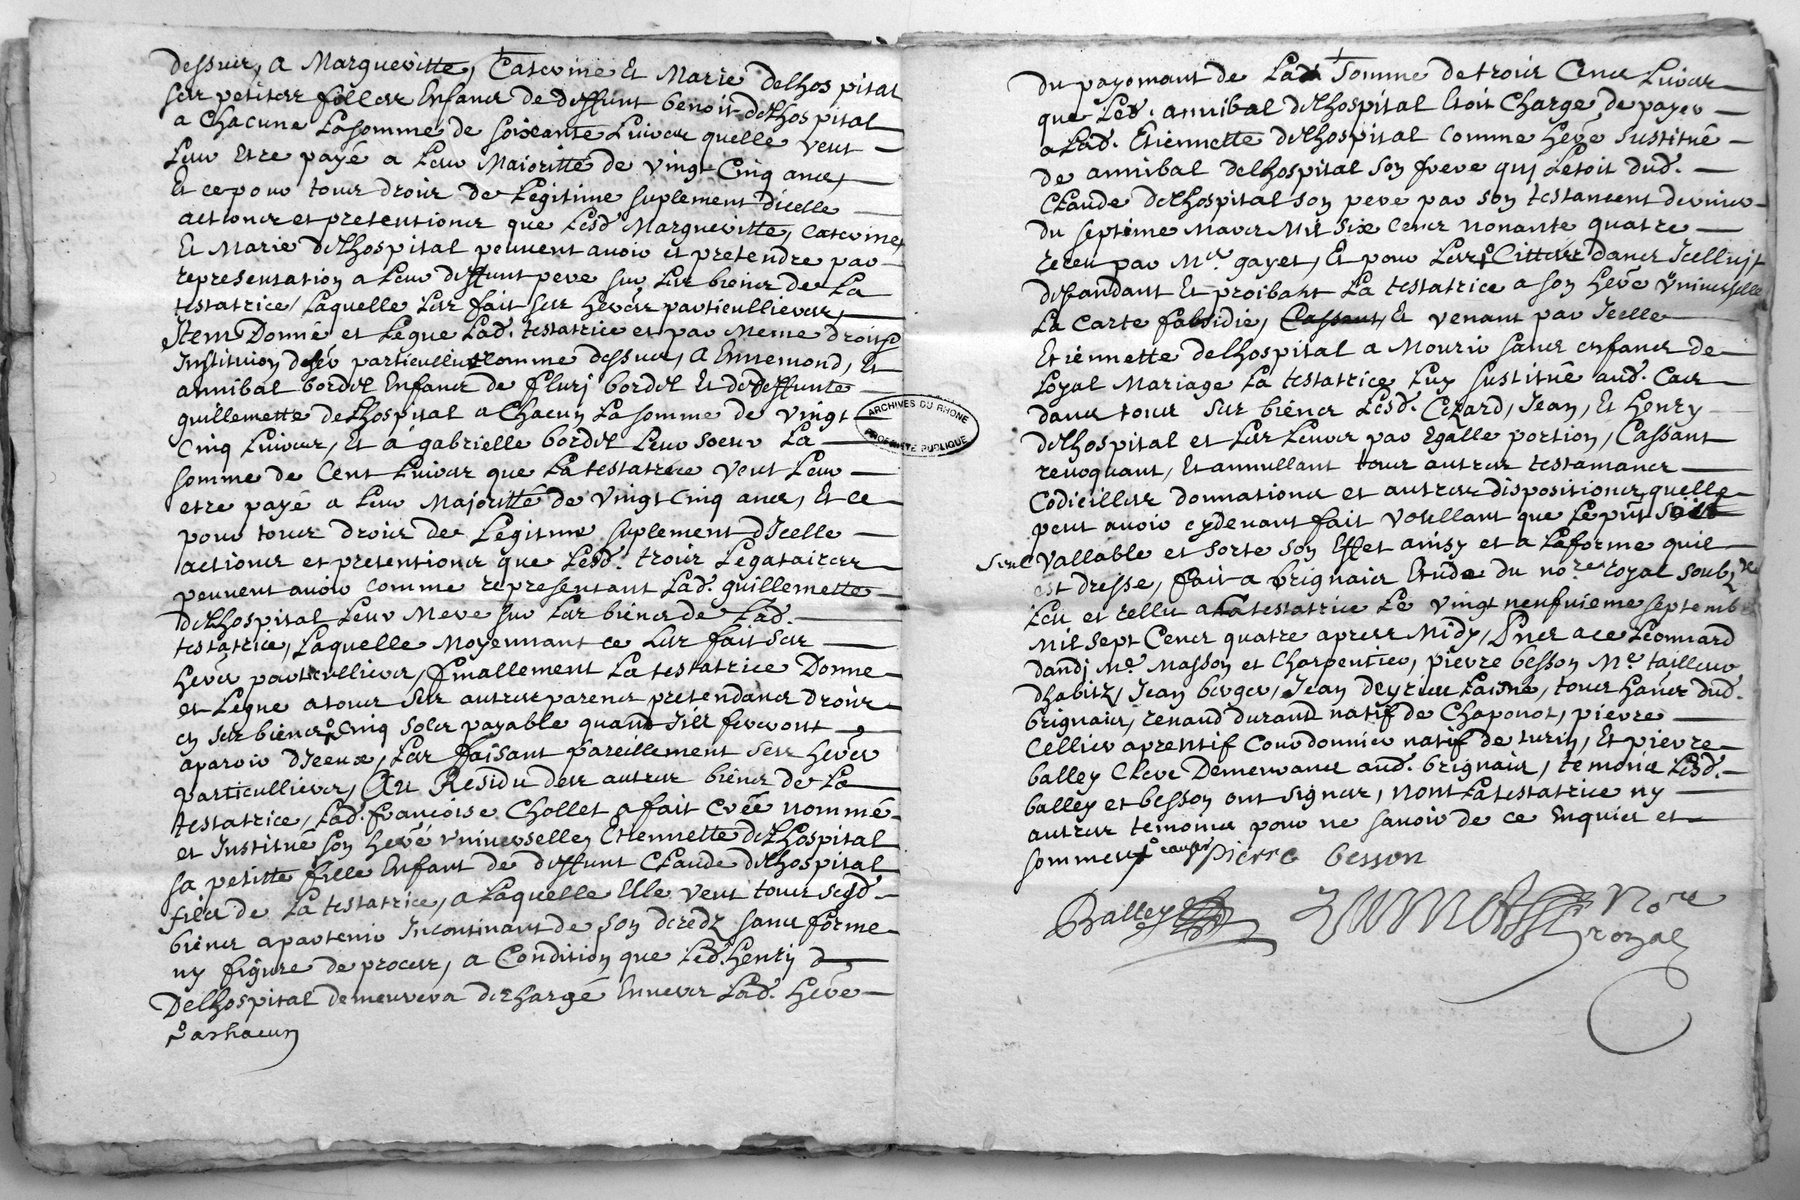 dessus, a Marguevitte, Caterine Et Marie delhospital
ses petites filles Enfans de deffunt benoit delhospital
a Chacune La somme de soixante Livres quelle veut
Leur Etre payé a Leur Majoritté de vingt Cinq ans,
Et ce pour tous droits de Legitime suplement dicelle
actions et pretentions que Lesd Marguevitte, Caterine,
Et Marie delhospital peuvent avoir et pretendre par
representation a Leur deffunt pere sur Les biens de La
testatrice, Laquelle Les fait ses heres particulliers,
Item Donne et Legue Lad. testatrice et par meme droit
Institution particulliere comme dessus, a Ennemond, Et
annibal bordel Enfans de fluri bordel Et de deffunte
guillemette delhospital a Chacun La somme de vingt
Cinq Livres, Et a gabrielle bordel Leur soeur La
somme de Cent Livres que La testatrice veut Leur
etre payé a Leur Majoritté de vingt Cinq ans, Et ce
pour tous droits de Legitime suplement dIcelle
actions et pretentions que Lesd. trois Legataires
peuvent avoir comme representant Lad. guillemette
delhospital Leur Mere sur Les biens de Lad.
testatrice, Laquelle Moyennant ce Les fait ses
heres particulliers, finallement La testatrice Donne
et Legue a tous ses autres parens pretendans droits
en ses biens Cinq sols payable quand Ils feront
aparoir dIceux, Les faisant pareillement ses heres
particulliers, Au Residu des autres biens de La
testatrice, Lad. françoise Chollet a fait Créé nommé
et Institué son heré universelle, Etiennette delhospital
sa petitte fille Enfant de deffunt Claude delhospital
fils de La testatrice, a Laquelle Elle veut tous sesd.
biens apartenir Incontinant de son decedz sans forme
ny figure de proces, a Condition que Led. henry d
Delhospital demeurera dechargé Envers Lad. heré
a chacun
du payemant de Lad somme de trois Cens Livres
que Led. annibal delhospital Etoit Chargé de payer
a Lad. Etiennette delhospital comme heré sustitué
de annibal delhospital son frere qui Letoit dud.
Claude delhospital son pere par son testament dernier
du septième Mars Mil six Cens nonante quatre
receu par Mr. gayet, Et pour Les Cittées dans Icelluy
deffandant Et proibant La testatrice a son heré universelle
La Carte falsidie, Cassant, Et venant par Icelle
Etiennette delhospital a Mourir sans enfans de
Loyal Mariage La testatrice Luy sustitue aud. Cas
dans tous ses biens Lesd. Cezard, Jean, Et henry
delhospital et Les Leurs par Egalle portion, Cassant
revoquant, Et annullant tous autres testamans
Codicilles donnations et autres dispositions quelle
peut avoir cydevant fait voullant que Le pnt soit
seul Vallable et sorte son Effet ainsy et a La forme quil
est dresse, fait a brignais Etude du nore. royal soubzne
Leu et rellu a La testatrice Le vingt neufvieme septembre
Mil sept Cens quatre apres Midy, pns a ce Leonnard
dandj Me. Masson et Charpentier, pierre besson Me. tailleur
dhabitz, Jean berger, Jean deyrieu Laisne, tous hans dud.
brignais, renaud durand natif de Chaponot, pierre
Cellier aprentif Courdonnier natif de turin, Et pierre
balley Clerc Demeurans aud. brignais, temoins Lesd.
balley et besson ont signes, nont La testatrice ny
autres temoins pour ne savoir de ce Enquis et
sommes Pierre besson
Balley
Nore
royal
ARCHIVES DU RHONE
PROPRIETE PUBLIQUE